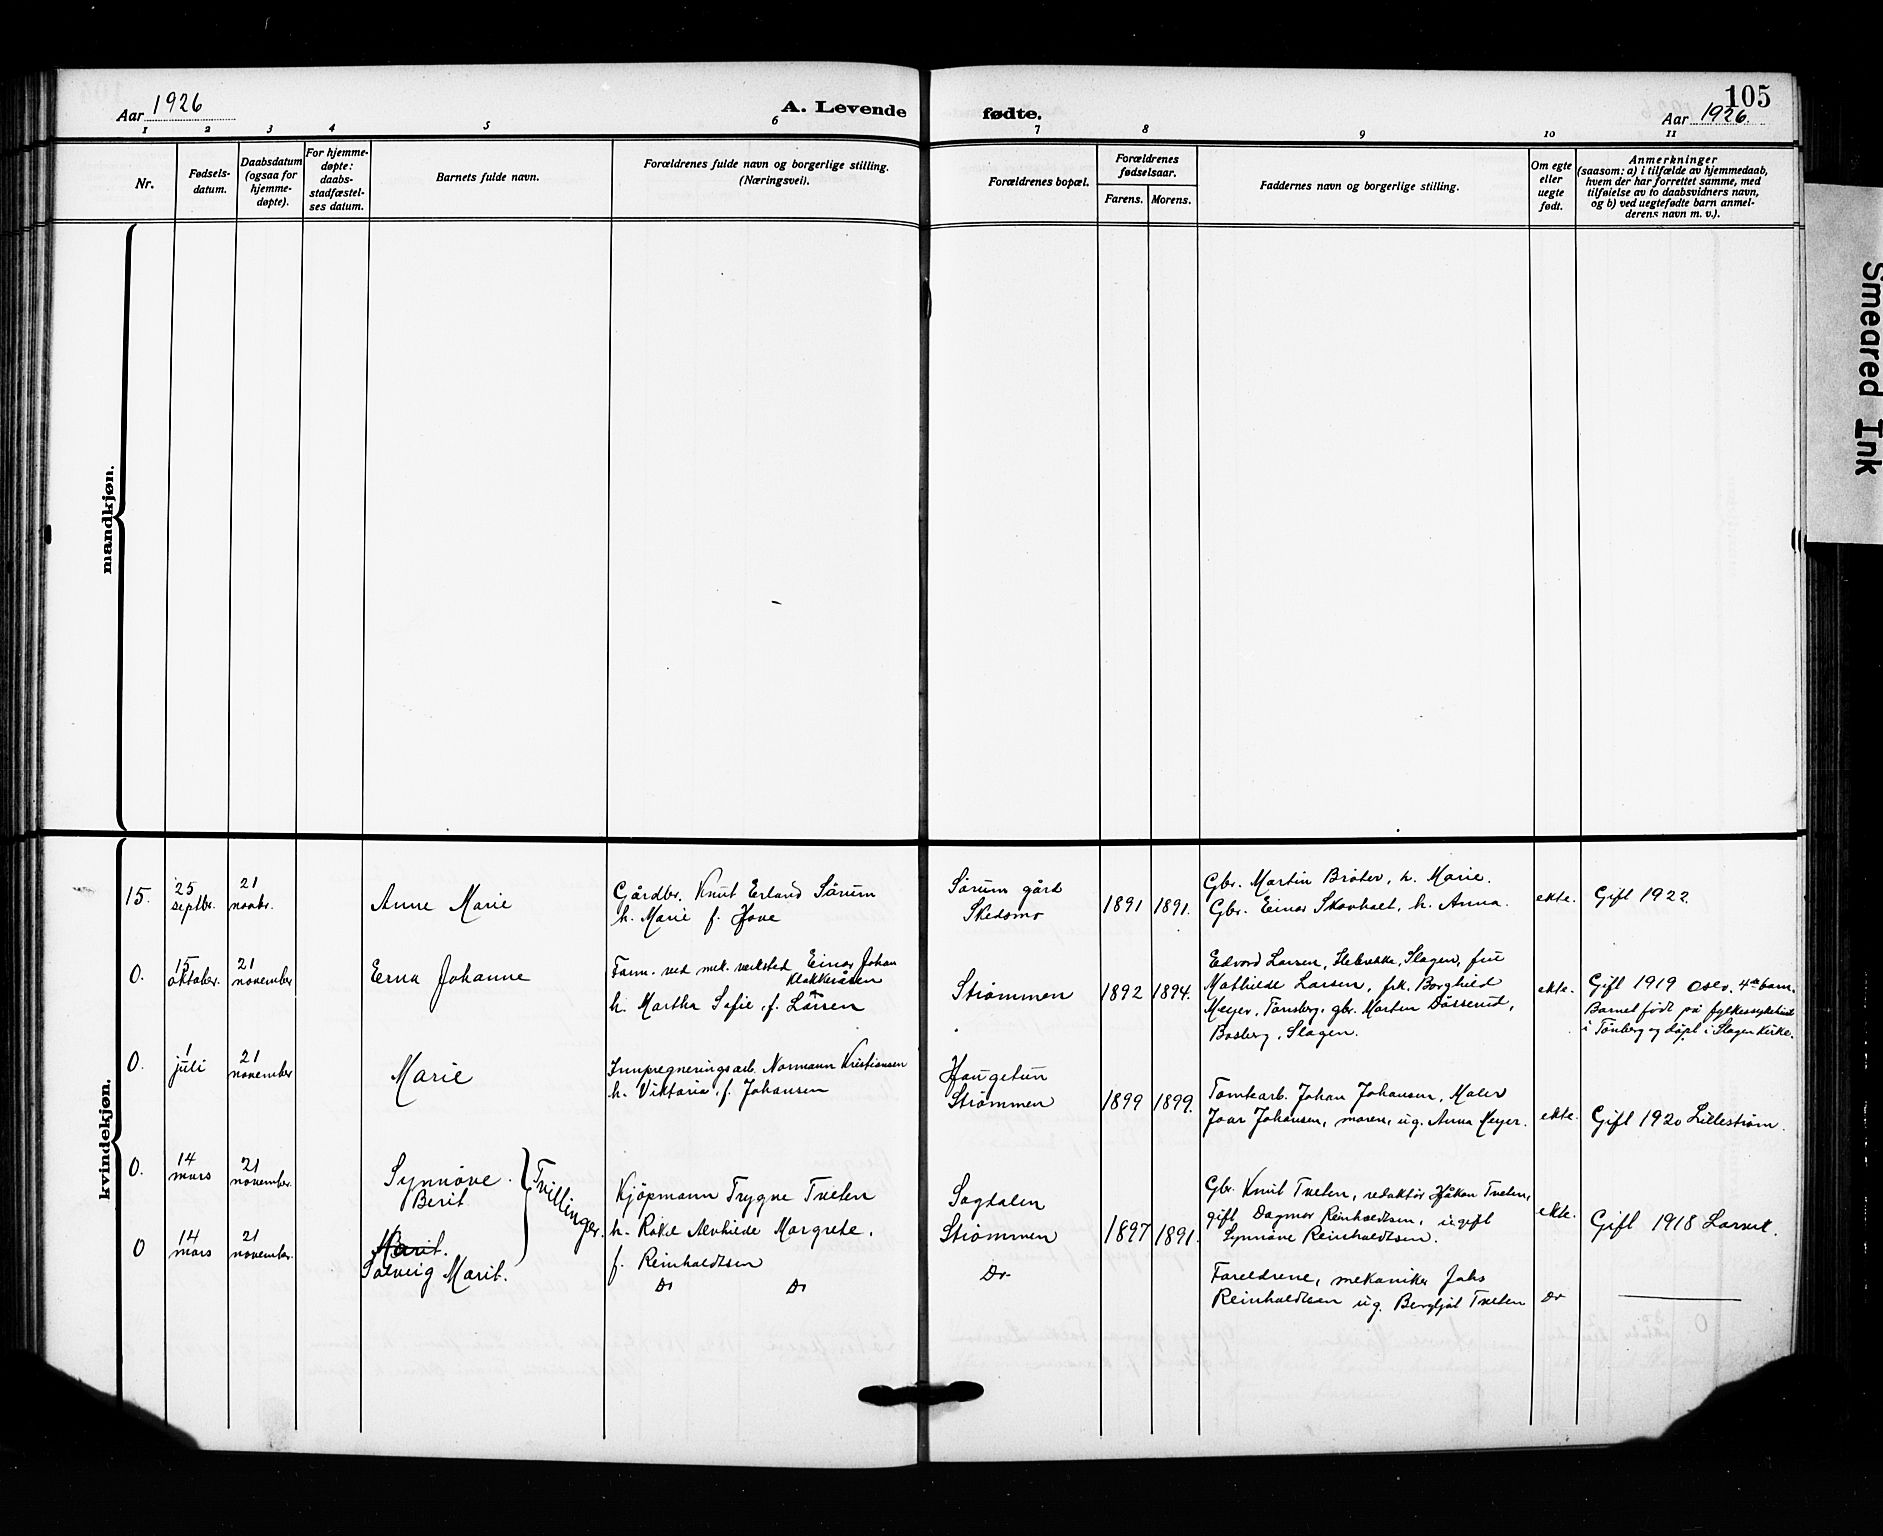 Aar 1926
A. Levende
fødte.
105
Aar 1926.
1 2 3 4 5 6 7 8 9 10 11
Nr.
Fødsels-
datum.
Daabsdatum
(ogsaa for
hjemme-
døpte).
For hjemme-
døpte:
daabs-
stadfæstel-
ses datum.
Barnets fulde navn.
Forældrenes fulde navn og borgerlige stilling.
(Næringsvei).
Forældrenes bopæl.
Forældrenes
fødselsaar.
Farens. Morens.
Faddernes navn og borgerlige stilling.
Om egte
eller
uegte
født.
Anmerkninger
(saasom: a) i tilfælde av hjemmedaab,
hvem der har forrettet samme, med
tilføielse av to daabsvidners navn,
og b) ved uegtefødte barn anmel-
derens navn m. v.).
Smeared Ink
mandkjøn.
kvindekjøn.
15.
25
septbr.
21
novbr.
Anne Marie
Gårdbr. Knut Erland Sørum
h. Marie f. Hove
Sørum gård
Skedsmo
1891
1891.
Gbr. Martin Bråter, h. Marie.
Gbr. Einar Skovholt, h. Anna.
ekte.
Gift 1922
0.
15
oktober.
21
november
Erna Johanne
Form. ved mek. verksted Einar Johan
Klakkeråsen
h. Martha Sofie, f. Larsen
Strømmen
1892
1894.
Edvard Larsen, Slagen, fru
Mathilde Larsen, frk. Borghild
Meyer, Tønsberg, gbr. Morten
Basberg, Slagen.
ekte.
Gift 1919 Oslo. 4de barn.
Barnet født på fylkessykehuset
i Tønberg og døpt i Slagen kirke.
0.
1
juli
21
november
Marie
Impregneringsarb. Normann Kristiansen
h. Viktoria, f. Johansen
Haugetun
Strømmen
1899
1899.
Tomtearb. Johan Johansen, Maler
Joar Johansen, moren, ug. Anna Meyer.
ekte.
Gift 1920 Lillestrøm.
0.
14
mars
21
november.
Synnøve
Berit
Tvillinger.
Kjøpmann Trygve Tveten
h. Rakel Alvhilde Margrete,
f. Reinholdtsen
Sagdalen
Strømmen
1897
1891.
Gbr. Knut Tveten, redaktør Håkon Tveten,
gift Dagmar Reinholdtsen, ugift
Synnøve Reinholdtsen.
ekte.
Gift 1918 Larvik.
0
14
mars
21
november.
Marit.
Solveig Marit.
Do Do
Do
Foreldrene, mekaniker Johs
Reinholdtsen ug. Bergljot Tveten
Do